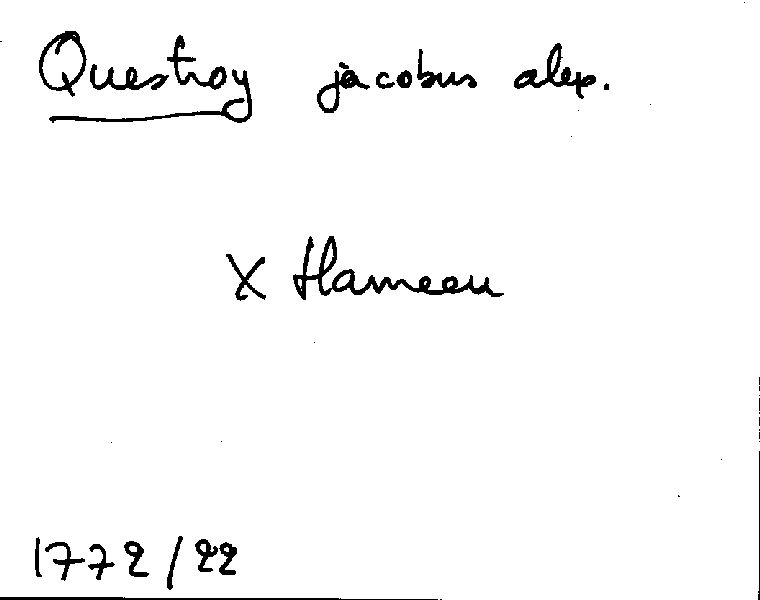 Questroy jacobus alex.
X Hameeu
1772/22